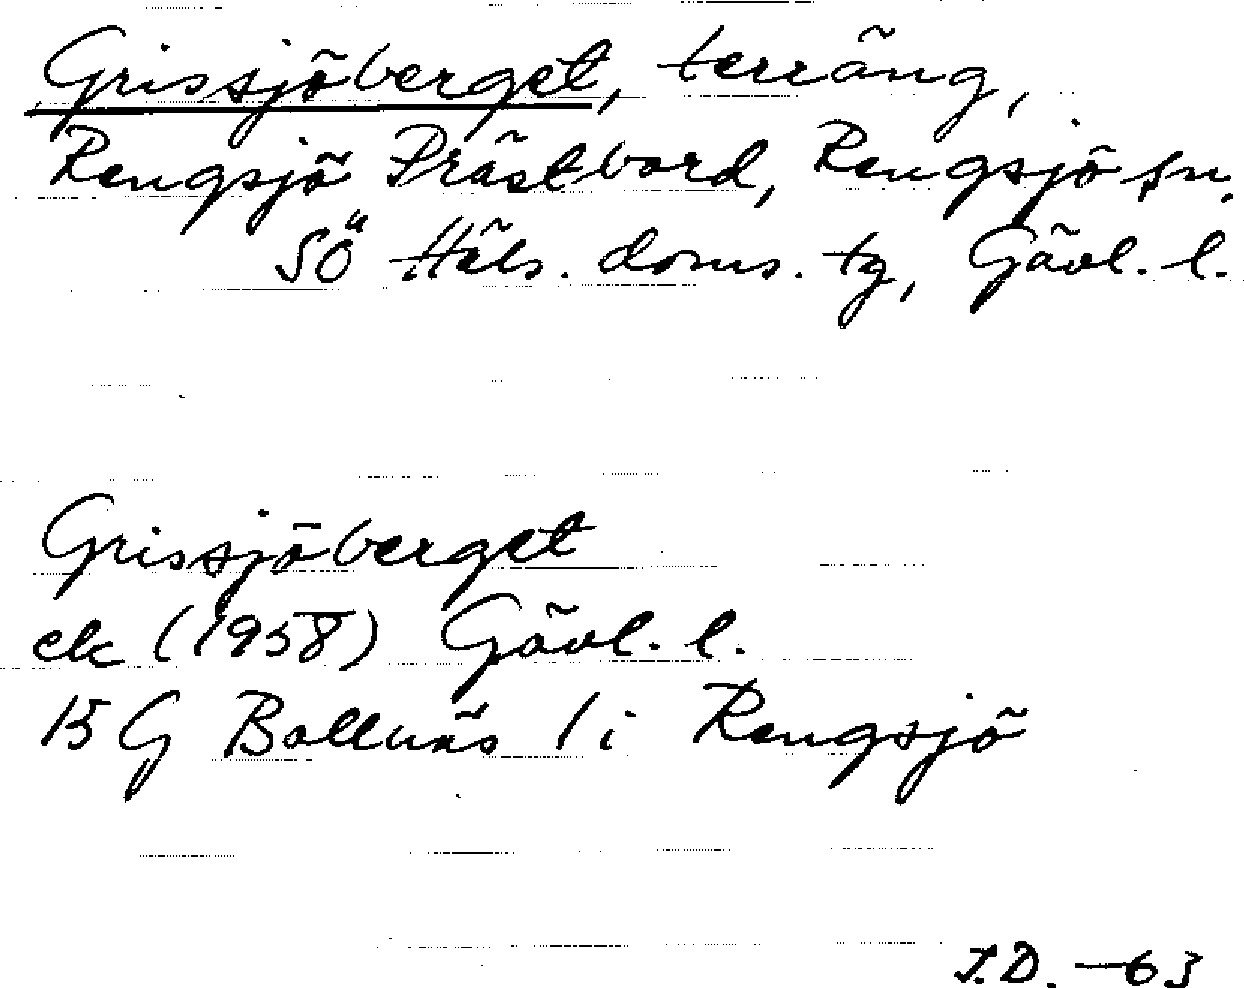 Grissjöberget, terräng,
Rengsjö Prästbord, Rengsjö sn.
SÖ Häls. doms. tg, Gävl. l.
Grissjöberget
ek (1958) Gävl. l.
15 G Bollnäs 1 i Rengsjö
I.D. -63